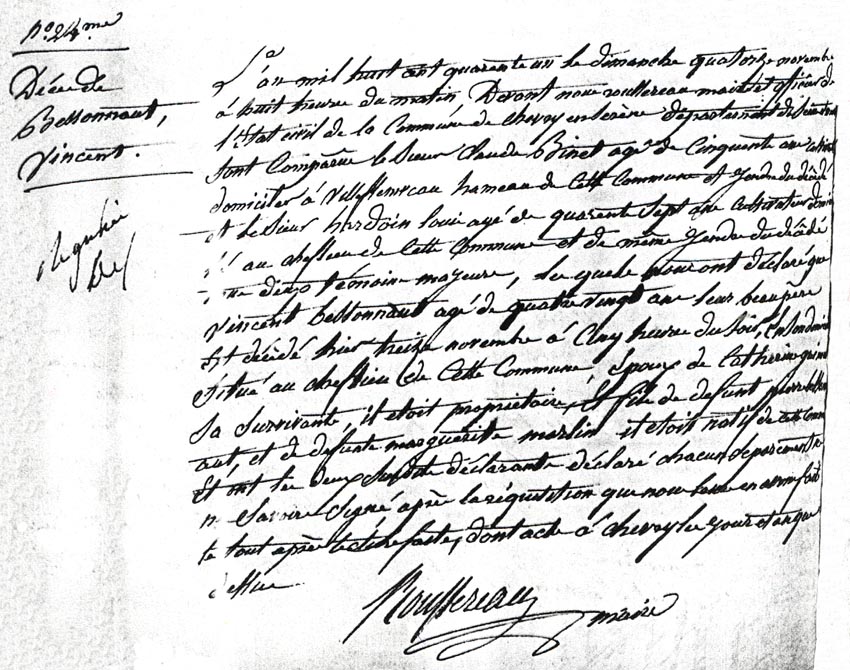 No. 24me
Décé de
Bessonnaut,
Vincent.
L'an mil huit cent quarente un le dimanche quatorze novembre
à huit heure du matin, Devant nous roussereau maire et officier de
l'Etat civil de la Commune de Chevry en serène département de seine
sont Comparu le sieur Claude Binet agé de Cinquente ans
domicilier à villessevreau hameau de cette Commune et gendre du décédé
et le sieur hardoin louis agé de quarente sept ans cultivateur
au cheflieu de cette Commune et de même gendre du décédé
tous deux témoins majeure, les quels nous ont déclaré que
vincent bessonnaut agé de quatre vingt ans leur beaupère
Est décédé hier treize novembre à Cinq heure du soir, en son domicile
situé au cheflieu de cette Commune Epoux de Catherine
sa survivante, il etoit propriétaire, et fils de defunt pierre besson
aut, et de defunte marguerite martin il etoit natif de cette Comm
Et ont les deux susdits déclarants déclaré chacun séparément
ne savoir signé après la réquisition que nous leur en avons fait
le tout après lecture faite, dont acte à chevry les jour et an que
dessus
Roussereau maire